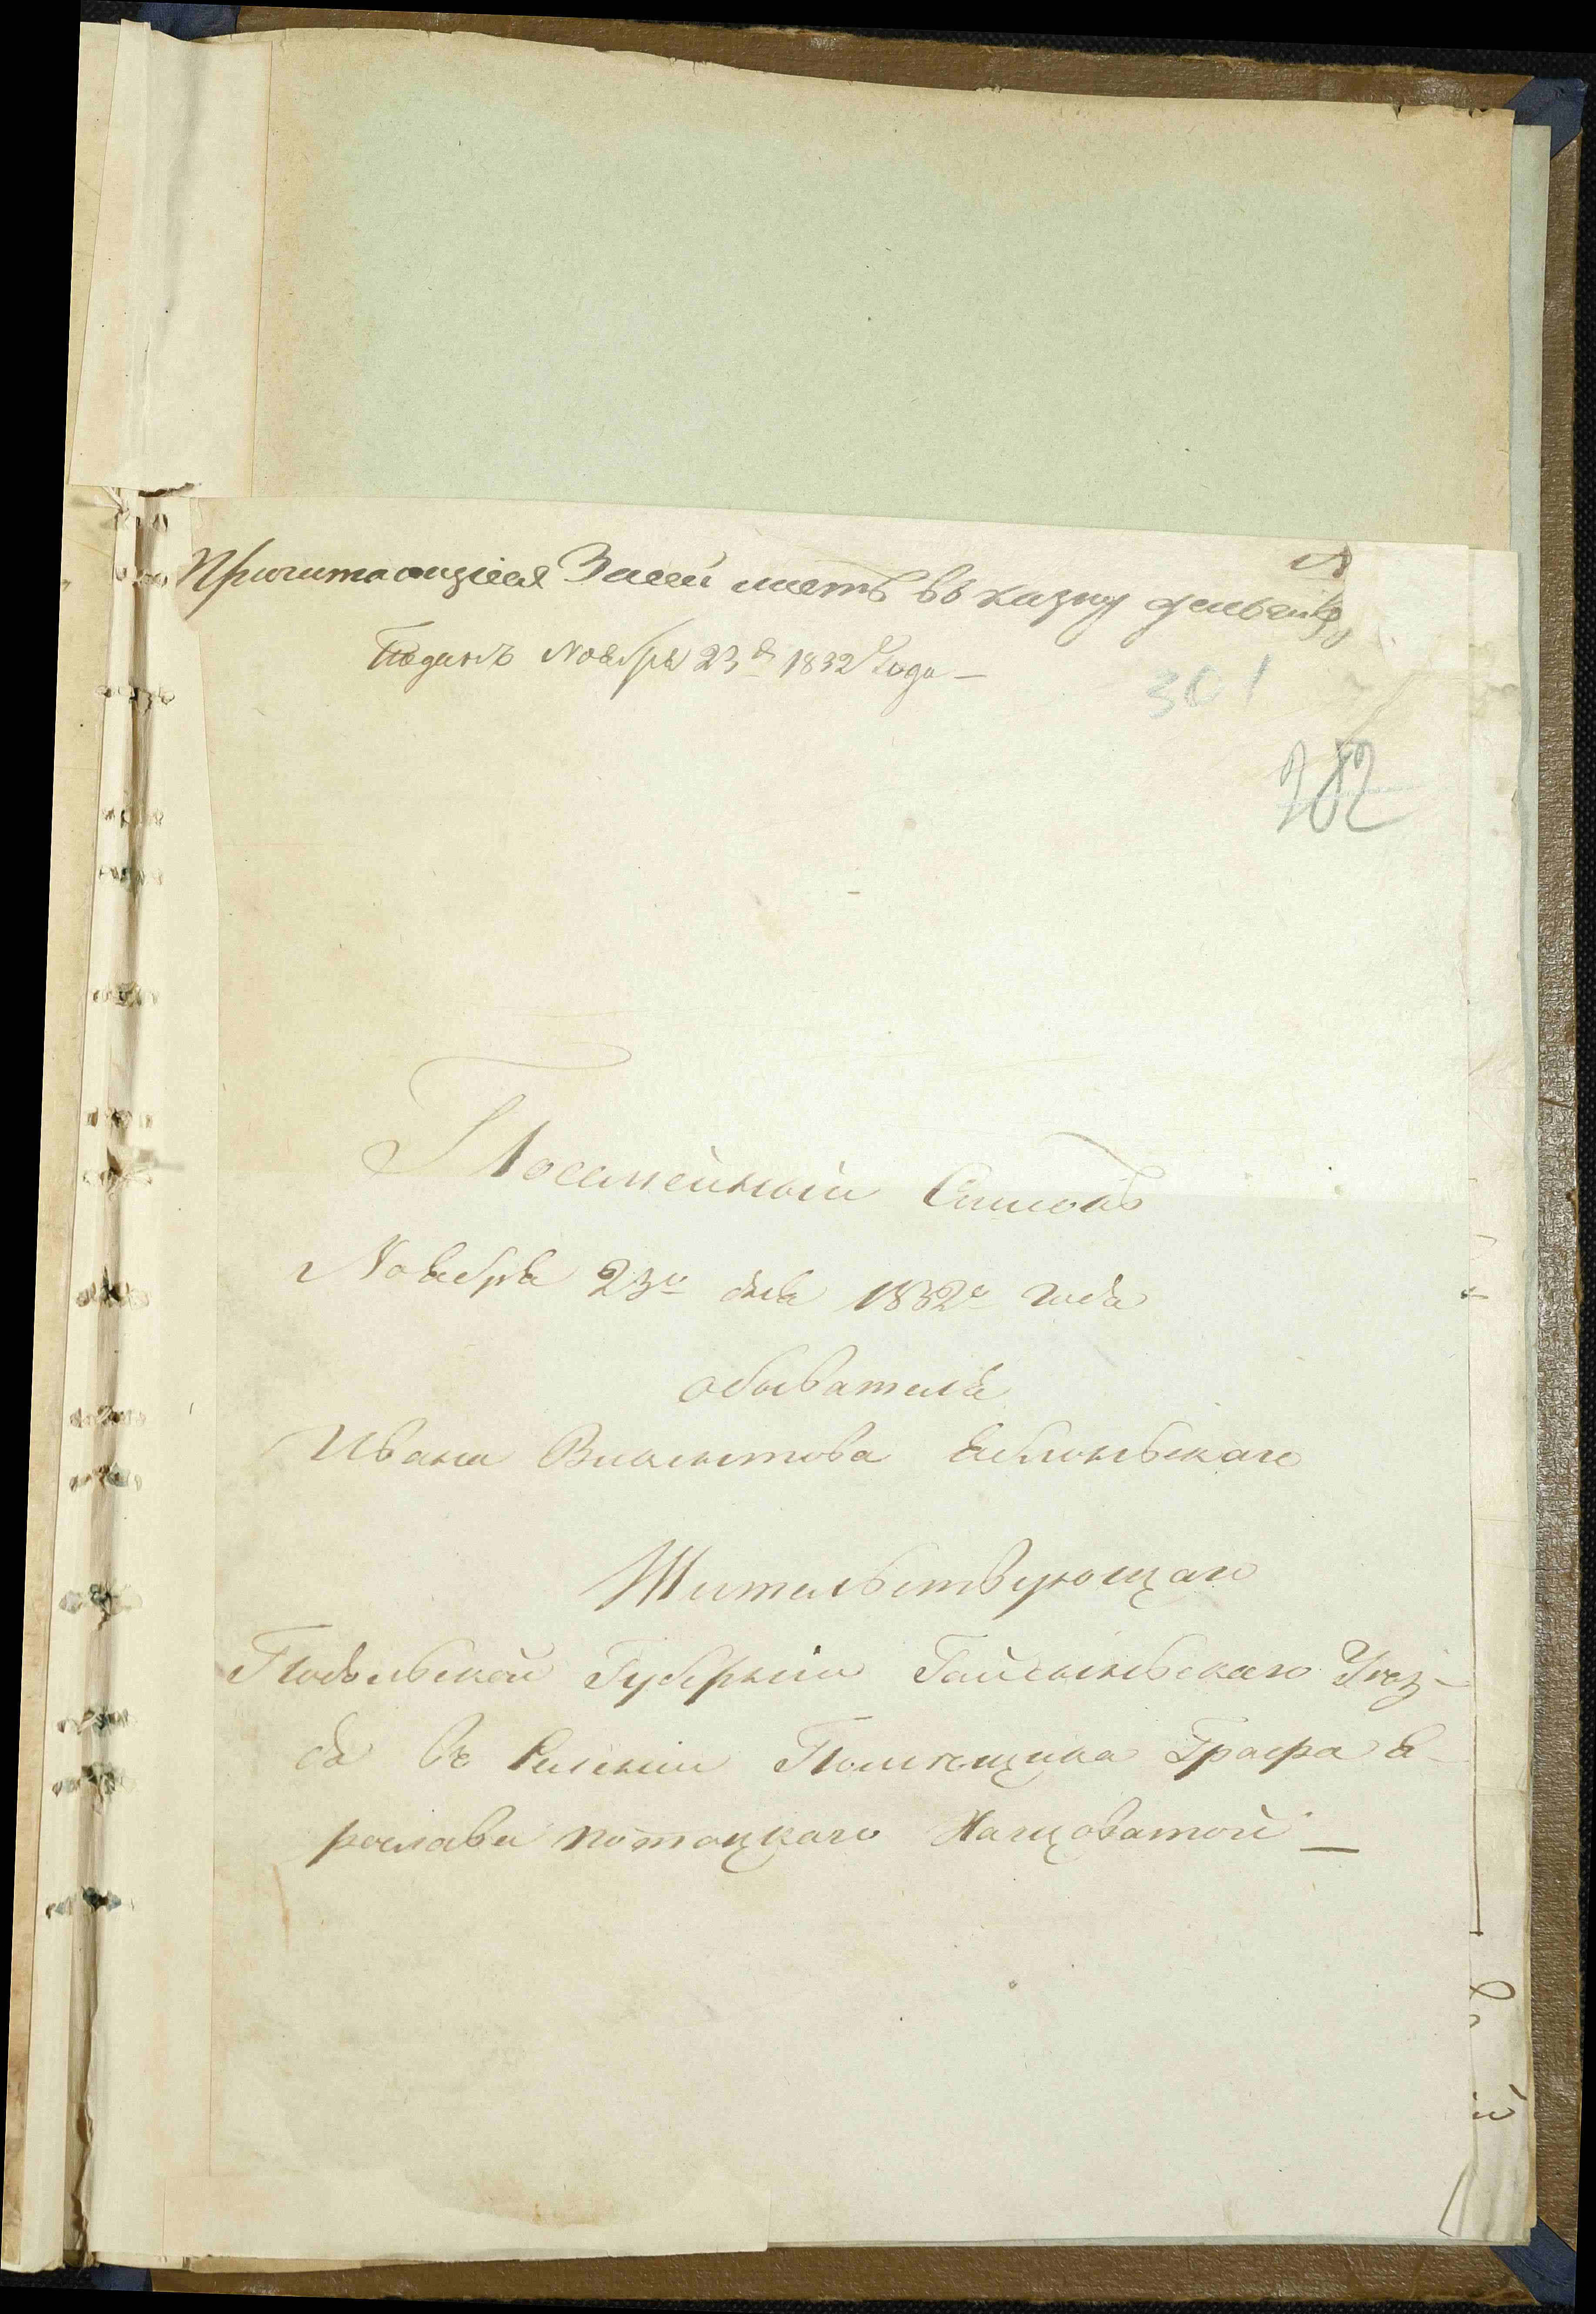 Причитающіеся За сей листъ въ казну деньги
Поданъ Ноября 23 д 1832 Года —
301
282
Посемейный Списокъ
Ноября 23го дня 1832го года
обывателя
Ивана Викентова Яблоньскаго
Жительствующаго
Подольской Губерніи Гайсыньскаго Уѣз-
да въ Селеніи Помѣщика Графа Я-
рослава Потоцкаго Нагцоватой —